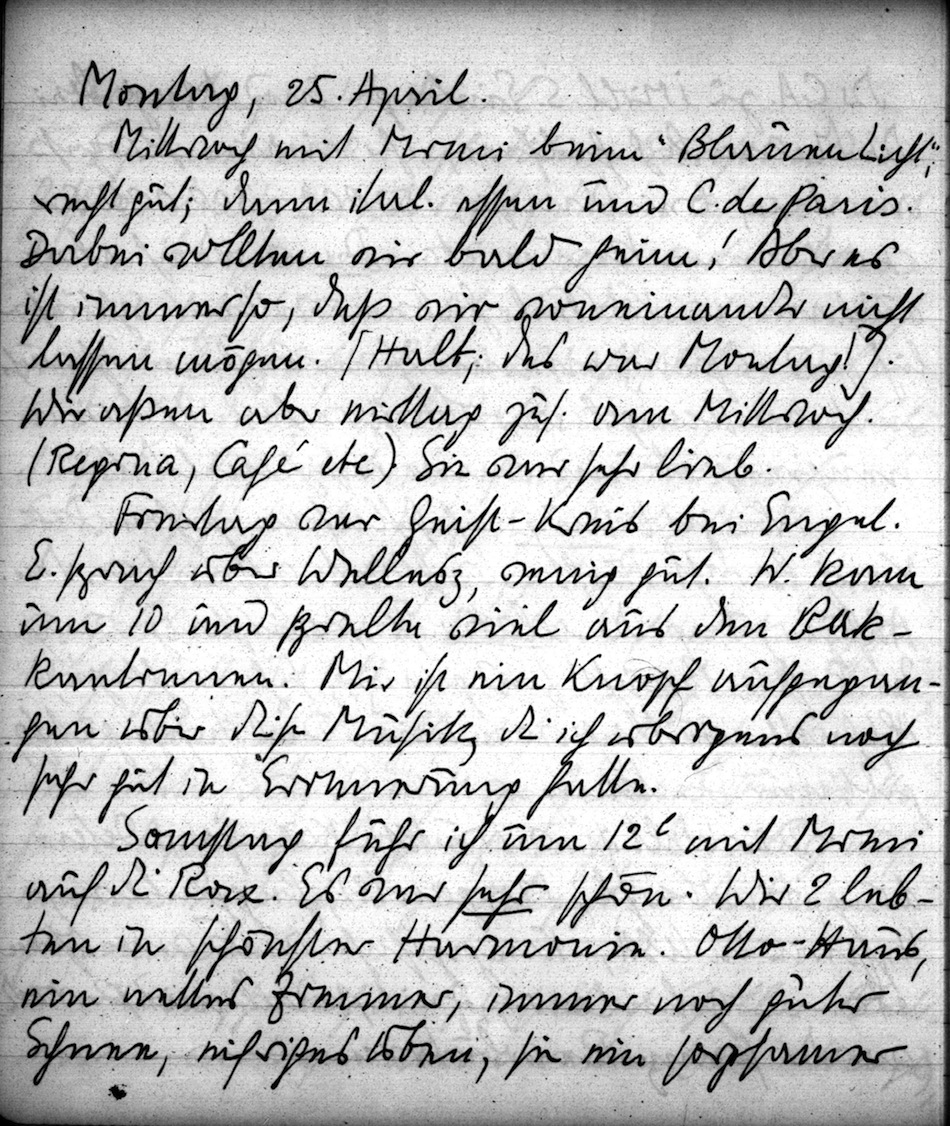 Montag, 25. April.
Mittwoch mit Mimi beim "Blauen Licht",
recht gut; dann ital. essen und C. de Paris.
Dabei wollten wir bald heim! Aber es
ist immer so, daß wir voneinander nicht
lassen mögen. [Halt; das war Montag!].
Wir aßen aber mittag zus. am Mittwoch.
(Regina, Café etc) Sie war sehr lieb.
Freitag war Geist-Kreis bei Engel.
E. sprach über Wellesz, wenig gut. W. kam
um 10 und spielte viel aus den Bak-
kantinnen. Mir ist ein Knopf aufgegan-
gen über diese Musik, die ich übrigens noch
sehr gut in Erinnerung hatte.
Samstag fuhr ich um 12 mit Mimi
auf die Rax. Es war sehr schön. Wir 2 leb-
ten in schönster Harmonie. Otto-Haus,
ein nettes Zimmer, immer noch guter
Schnee, eifriges Üben, sie ein sorgsamer